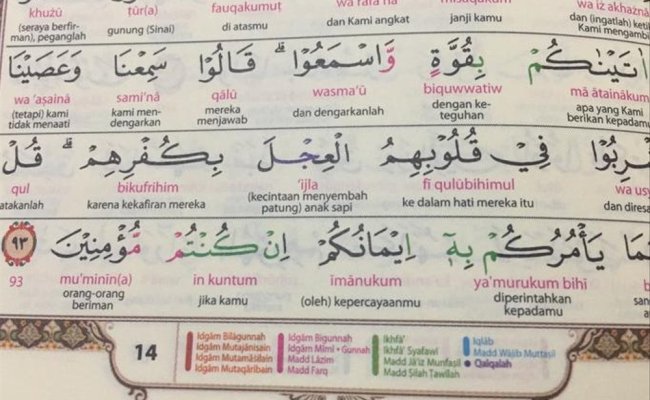 khużū ṭūr(a) fauqakumuṭ
(seraya berfir- gunung (Sinai) di atasmu dan Kami angkat janji kamu dan (ingatlah) ketika
man), peganglah Kami mengambil
اٰتَيْنٰكُمْ بِقُوَّةٍ وَّاسْمَعُوْا ۗ قَالُوْا سَمِعْنَا وَعَصَيْنَا
wa ‘aṣainā sami‘nā qālū wasma‘ū biquwwatiw mā ātainākum
(tetapi) kami kami men- mereka dan dengarkanlah dengan ke- apa yang Kami
tidak menaati dengarkan menjawab teguhan berikan kepadamu
فِيْ قُلُوْبِهِمُ الْعِجْلَ بِكُفْرِهِمْ ۗ قُلْ
qul bikufrihim ‘ijla fī qulūbihimul
karena kekafiran mereka (kecintaan menyembah ke dalam hati mereka itu
patung) anak sapi
يَأْمُرُكُمْ بِهٖٓ اِيْمَانُكُمْ اِنْ كُنْتُمْ مُّؤْمِنِيْنَ ٩٣
93 mu'minīn(a) in kuntum īmānukum ya'murukum bihī
orang-orang jika kamu (oleh) kepercayaanmu diperintahkan
beriman kepadamu
14
Idgām Bilāgunnah Idgām Bigunnah Ikhfā' Iqlāb
Idgām Mutajānisain Idgām Mīmī - Gunnah Ikhfā' Syafawī Madd Wājib Muttaṣil
Idgām Mutamāṡilain Madd Lāzim Madd Jā'iz Munfaṣil Qalqalah
Idgām Mutaqāribain Madd Farq Madd Ṣilah Ṭawīlah